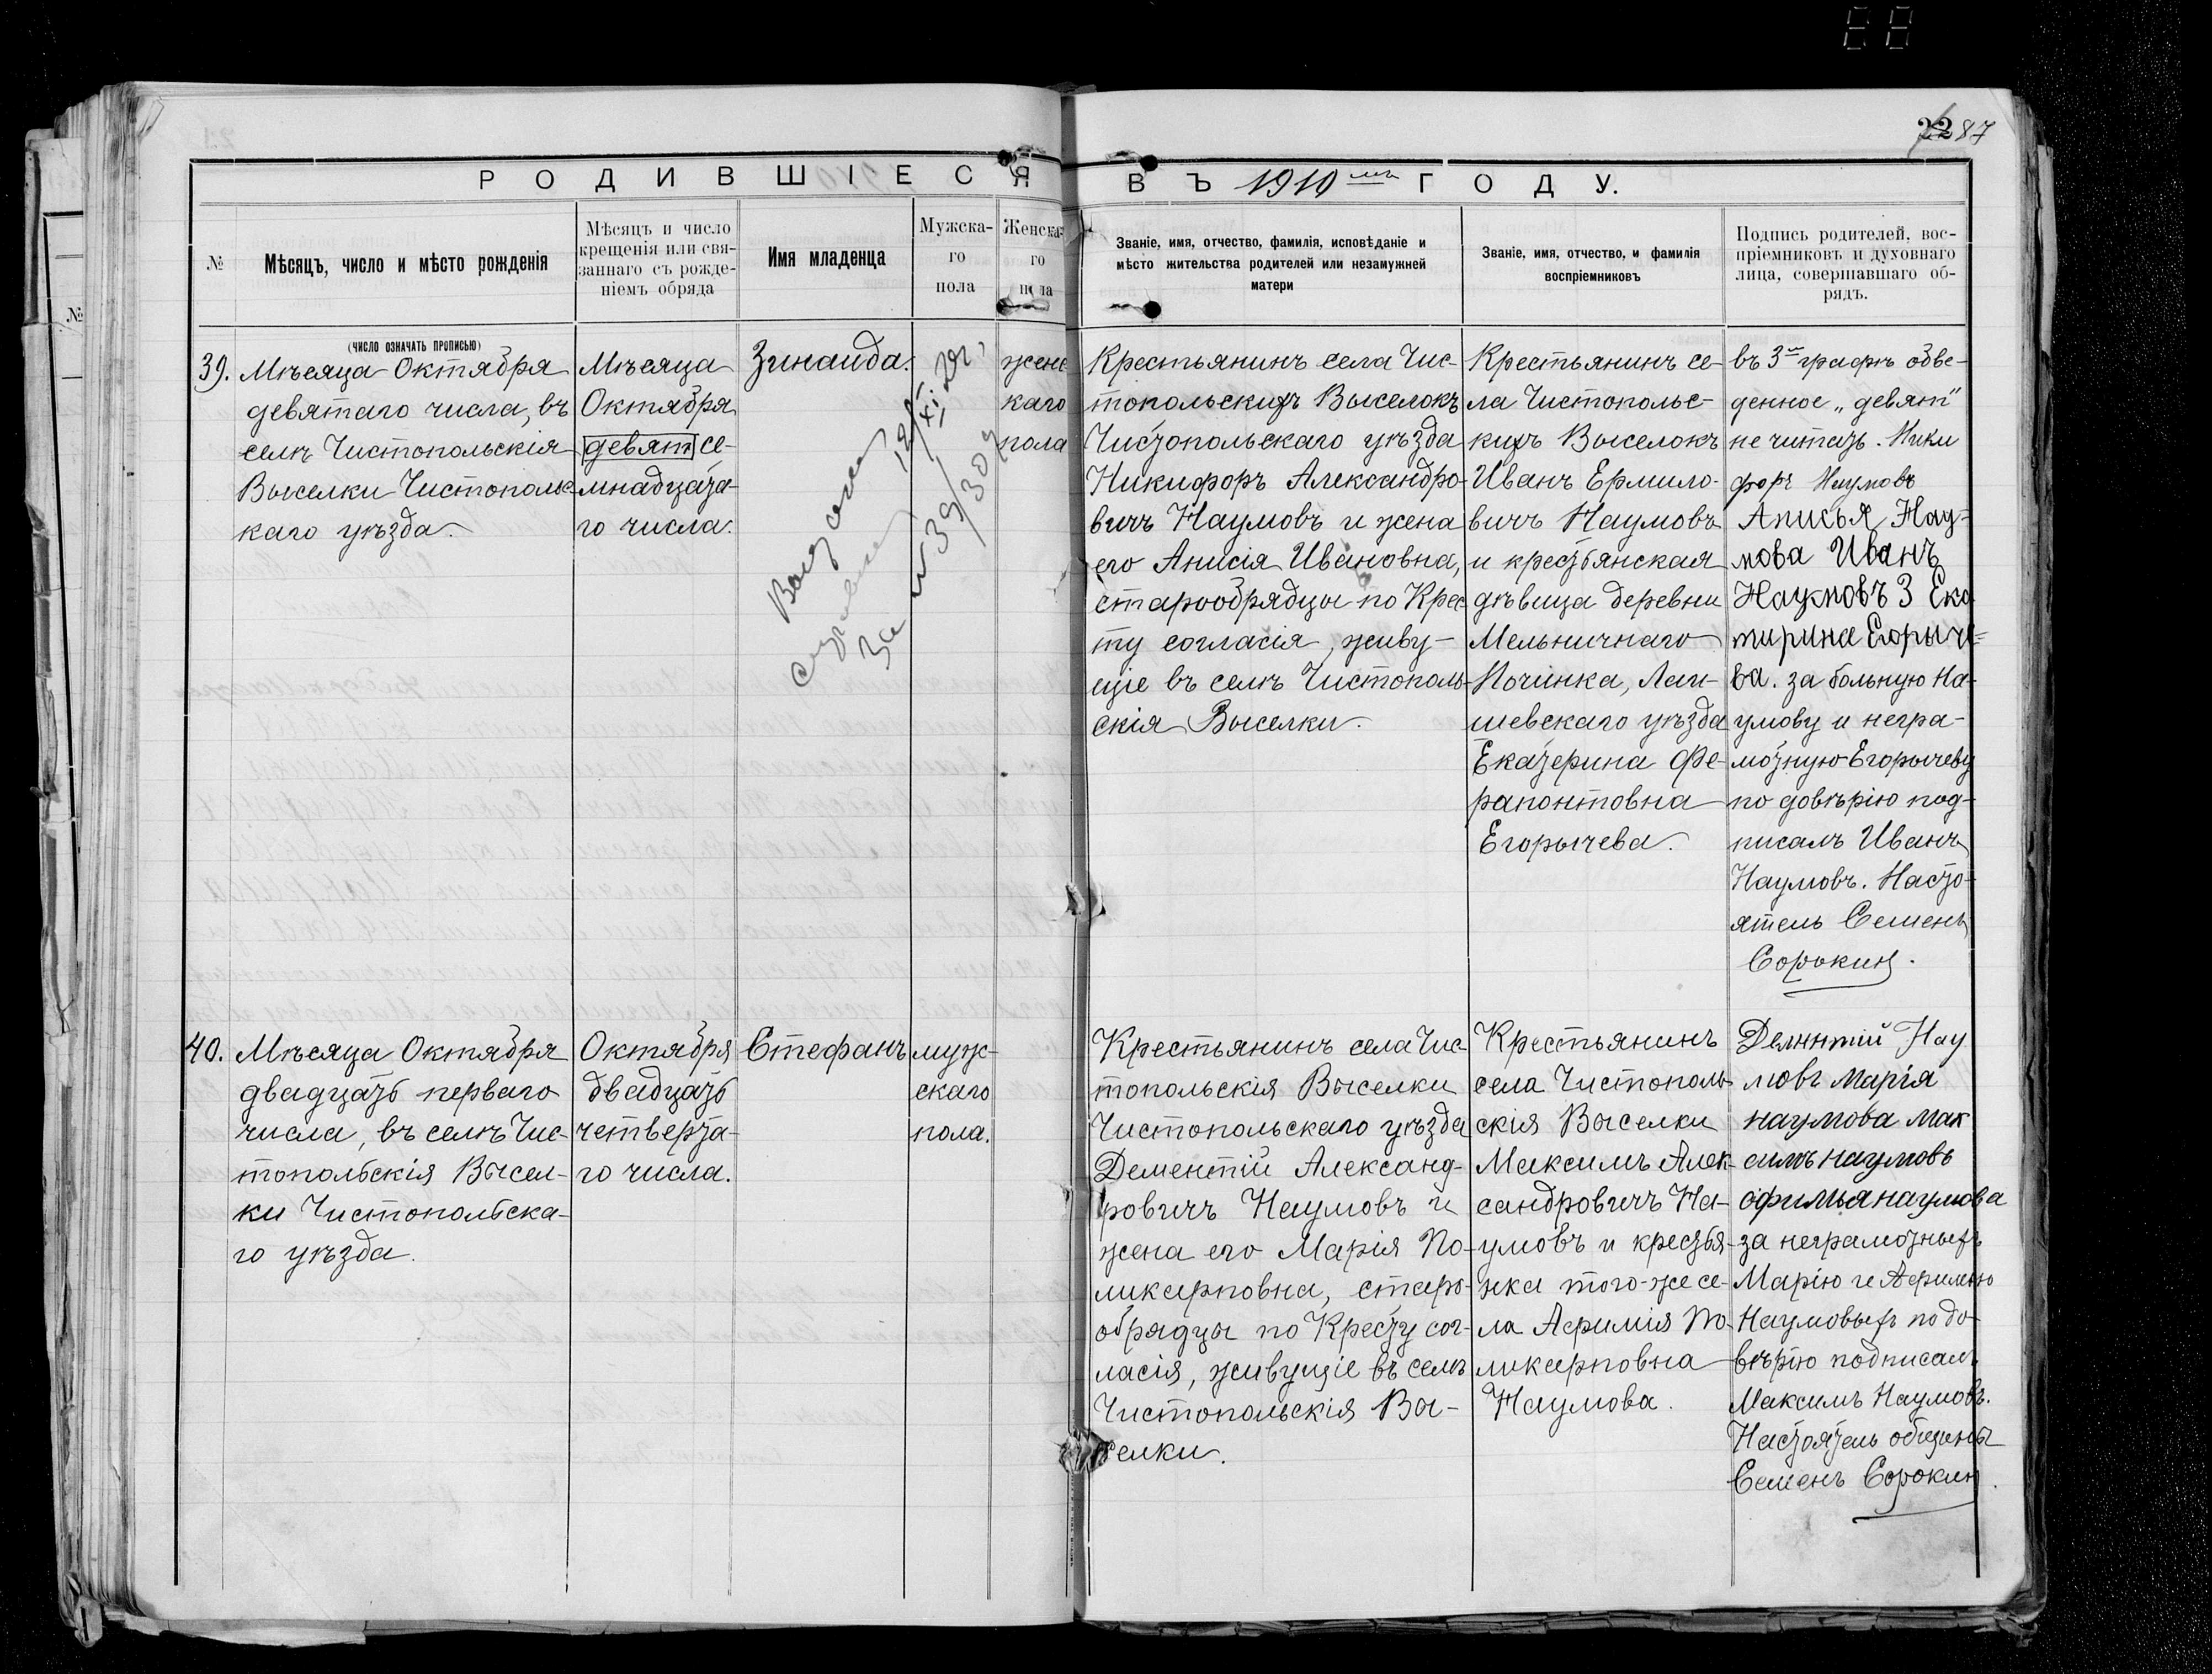 22 87
РОДИВШІЕСЯ ВЪ 1910мъ ГОДУ.
№
Мѣсяцъ, число и мѣсто рожденія
Мѣсяцъ и число
крещенія или свя-
заннаго съ рожде-
ніемъ обряда
Имя младенца
Мужска-
го
пола
Женска-
го
пола
Званіе, имя, отчество, фамилія, исповѣданіе и
мѣсто жительства родителей или незамужней
матери
Званіе, имя, отчество, и фамилія
воспріемниковъ
Подпись родителей, вос-
пріемниковъ и духовнаго
лица, совершавшаго об-
рядъ.
(число означать прописью)
39.
Мѣсяца Октября
девятаго числа, въ
селѣ Чистопольскія
Выселки Чистопольс-
каго уѣзда.
Мѣсяца
Октября
девят се-
мнадцата-
го числа.
Зинаида.
12/XI 29г.
за № 39/309
женс
каго
пола
Крестьянинъ села Чис-
топольскихъ Выселокъ
Чистопольскаго уѣзда
Никифоръ Александро-
вичъ Наумовъ и жена
его Анисія Ивановна,
старообрядцы по Крес-
ту согласія, живу-
щіе въ селѣ Чистополь-
скія Выселки.
Крестьянинъ се-
ла Чистопольс-
кихъ Выселокъ
Иванъ Ермило-
вичъ Наумовъ
и крестьянская
дѣвица деревни
Мельничнаго
Починка, Лаи-
шевскаго уѣзда
Екатерина Фе-
рапонтовна
Егорычева.
въ 3й графѣ обве-
денное „девят"
не читать. Ники
форъ Наумовъ
Анисья Нау-
мова Иванъ
Наумовъ З Ека
тирина Егорыче-
ва. за больную На-
умову и негра-
мотную Егорычеву
по довѣрію под-
писалъ Иванъ
Наумовъ. Насто-
ятель Семенъ
Сорокин.
40.
Мѣсяца Октября
двадцать перваго
числа, въ селѣ Чис-
топольскія Высел-
ки Чистопольска-
го уѣзда.
Октября
двадцать
четверта-
го числа.
Стефанъ
муж-
скаго
пола.
Крестьянинъ села Чис-
топольскія Выселки
Чистопольскаго уѣзда
Дементій Александ-
ровичъ Наумовъ и
жена его Марія По-
ликарповна, старо-
обрядцы по Кресту сог-
ласія, живущіе въ селѣ
Чистопольскія Вы-
селки.
Крестьянинъ
села Чистополь-
скія Выселки
Максимъ Алек-
сандровичъ На-
умовъ и крестья-
нка того-же се-
ла Афимія По-
ликарповна
Наумова.
Дементій Нау
мовъ Марія
наумова Мак
симъ наумовъ
офимья наумова
за неграмотныхъ
Марію и Афимію
Наумовыхъ по до-
вѣрію подписалъ
Максимъ Наумовъ.
Настоятель общины
Семенъ Сорокин.